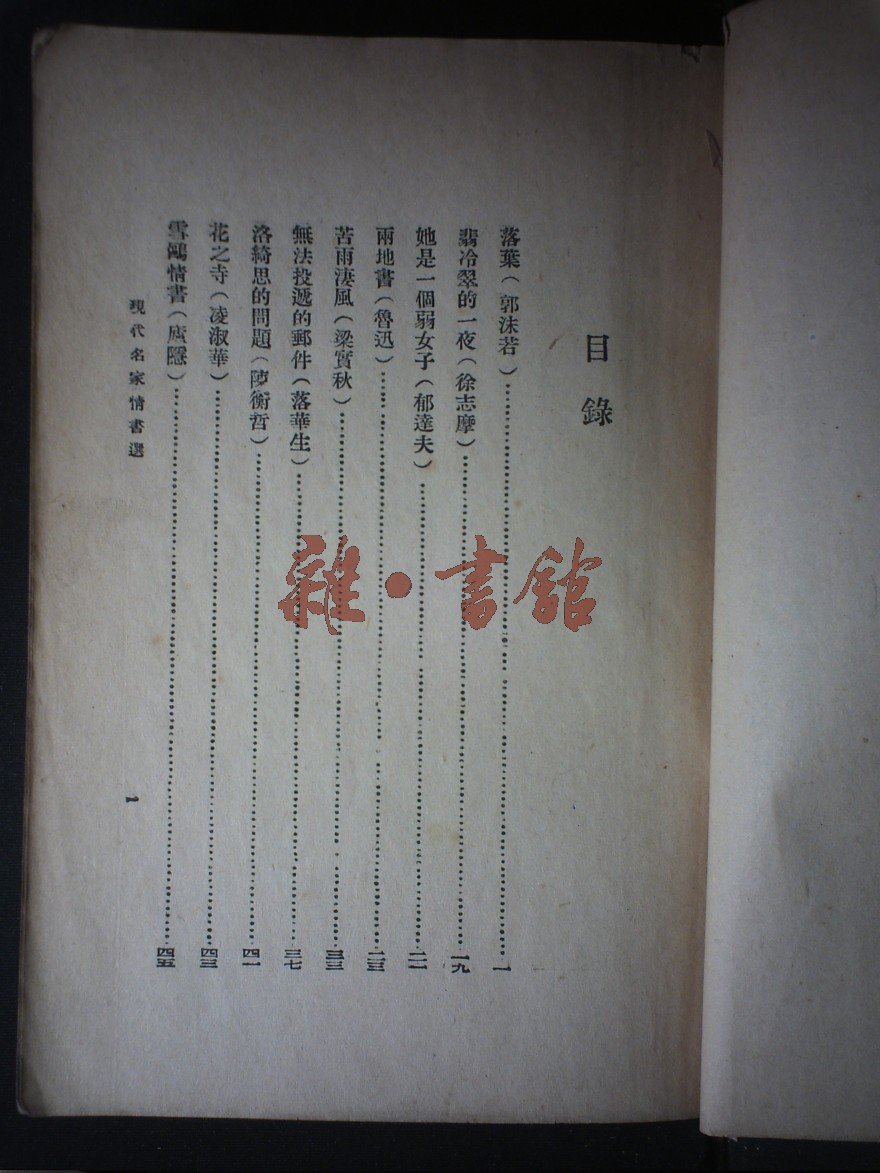 目錄
落葉（郭沫若）…………一
翡冷翠的一夜（徐志摩）…………一九
她是一個弱女子（郁達夫）…………二一
兩地書（魯迅）…………二三
苦雨淒風（梁實秋）…………三三
無法投遞的郵件（落華生）…………三七
洛綺思的問題（陳衡哲）…………四一
花之寺（凌淑華）…………四三
雪鴻情書（廬隱）…………四五
現代名家情書選
1
雜·書館